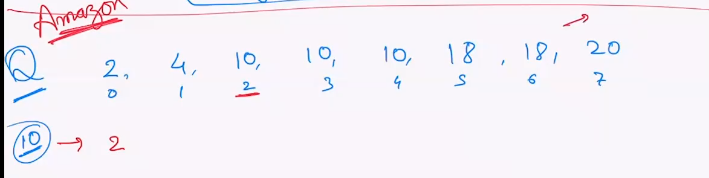 Amazon
Q 2, 4, 10, 10, 10, 18, 18, 20
0 1 2 3 4 5 6 7
10 → 2